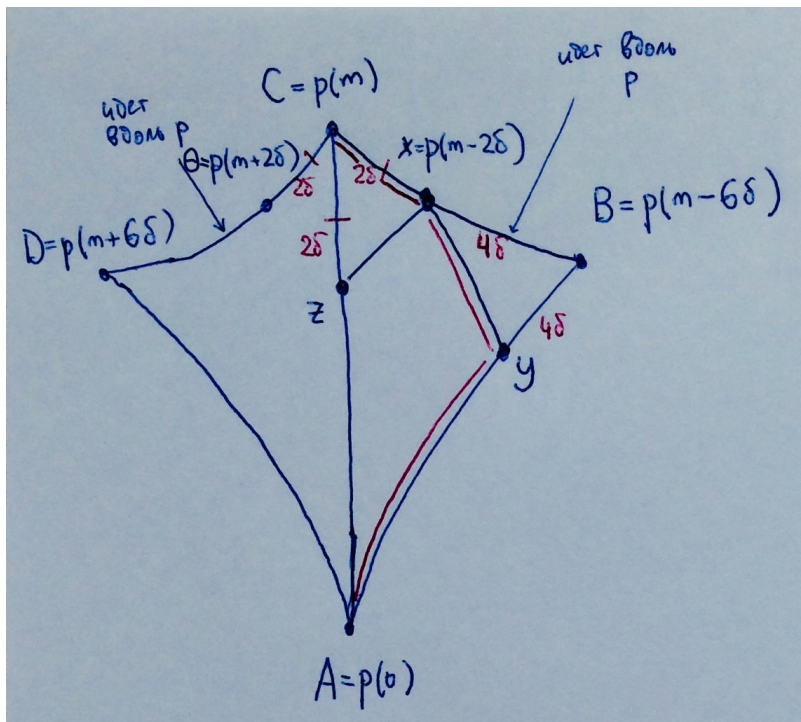 идет вдоль
p
C = p(m)
идет
вдоль p
θ=p(m+2δ)
x=p(m-2δ)
2δ
2δ
B = p(m-6δ)
D=p(m+6δ)
2δ
4δ
z
4δ
y
A=p(0)